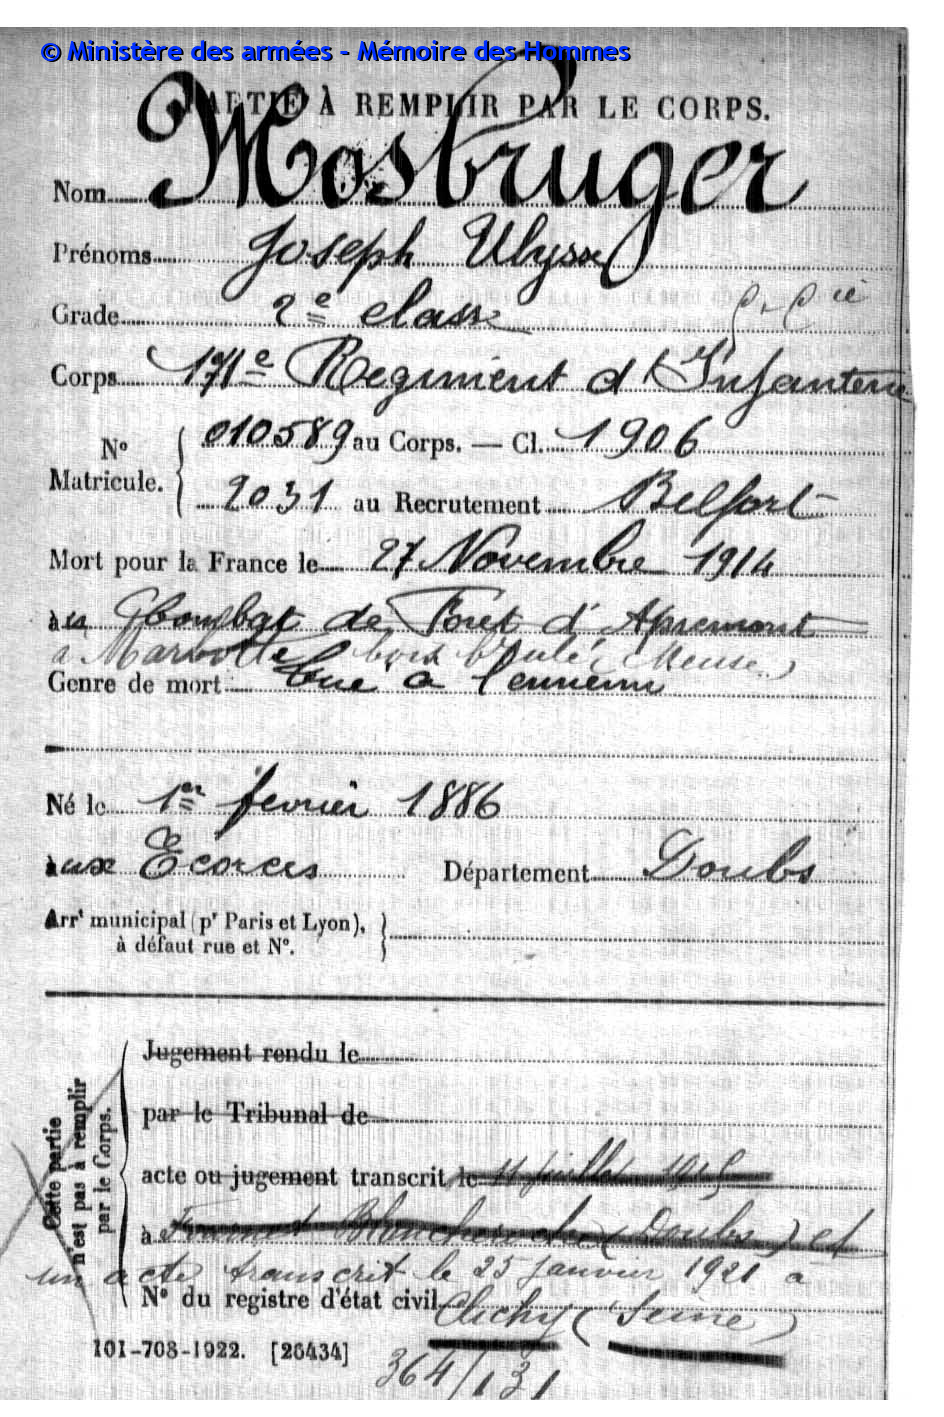 © Ministère des armées - Mémoire des Hommes
PARTIE À REMPLIR PAR LE CORPS.
Nom Mosbruger
Prénoms Joseph Ulysse
Grade 2e classe
Corps 171e Régiment d'Infanterie
No Matricule. { 010589 au Corps. — Cl. 1906
2031 au Recrutement Belfort
Mort pour la France le 27 Novembre 1914
à au Combat de Forêt d'Apremont
à Marbotte bois brulé (Meuse)
Genre de mort Tué à l'ennemi
Né le 1er février 1886
aux Ecorces Département Doubs
Arrt municipal (pr Paris et Lyon),
à défaut rue et No.
Cette partie
n'est pas à remplir
par le Corps.
Jugement rendu le
par le Tribunal de
acte ou jugement transcrit le 11 juillet 1915
à Fournet Blancheroche (Doubs) et
un acte transcrit le 25 janvier 1921 à
No du registre d'état civil Clichy (Seine)
101-708-1922. [26434]
364/131